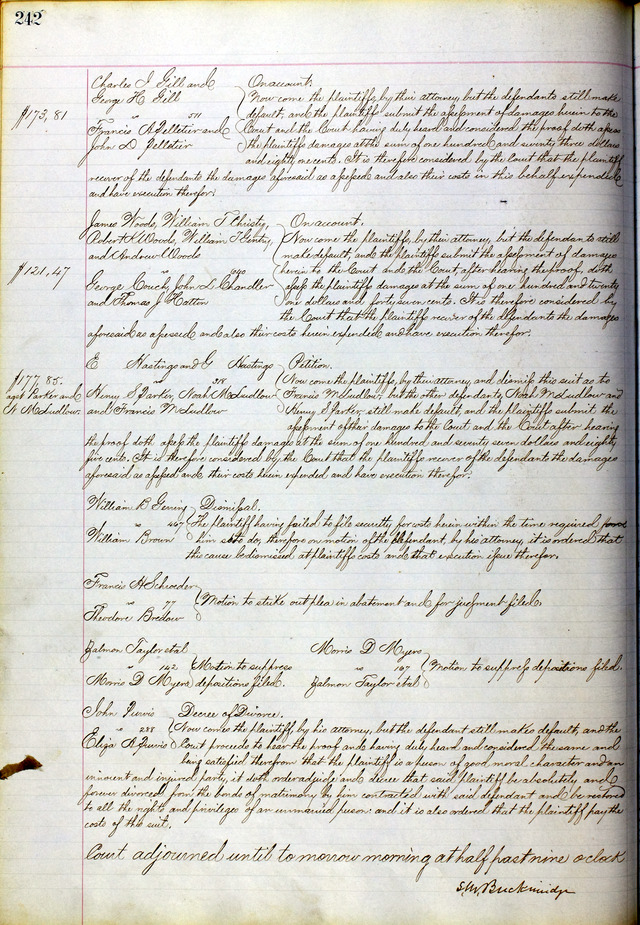 242
Charles I. Gill and } On account.
George H. Gill Now come the plaintiffs, by their attorney, but the defendants still make
$173,81 " 571 default, and the plaintiffs submit the assessment of damages herein to the
Francis A Pelletier and Court and the Court having duly heard and considered the proof doth assess
John D Pelletier the plaintiffs damages at the sum of one hundred and seventy three dollars
and eighty one cents. It is therefore considered by the Court that the plaintiffs
recover of the defendants the damages aforesaid as assessed and also their costs in this behalf expended
and have execution therefor.
James Woods, William T. Christy, } On account.
Robert K Woods, William T Gentry, Now come the plaintiffs, by their attorney, but the defendants still
and Andrew Woods make default, and the plaintiffs submit the assessment of damages
$121,47 " herein to the Court and the Court after hearing the proof, doth
George Couch, John L. Chandler assess the plaintiffs damages at the sum of one hundred and twenty
and Thomas J Hatton one dollars and forty seven cents. It is therefore considered by
the Court that the plaintiffs recover of the defendants the damages
aforesaid as assessed and also their costs herein expended and have execution therefor.
E Hastings and G Hastings } Petition.
$177,85. " 318 Now come the plaintiffs, by their attorney, and dismiss this suit as to
agst Parker and Henry S Parker, Noah McLudlow Francis McLudlow, but the other defendants, Noah McLudlow and
N McLudlow. and Francis McLudlow Henry S Parker, still make default, and the plaintiffs submit the
assessment of their damages to the Court and the Court after hearing
the proof doth assess the plaintiff damages at the sum of one hundred and seventy seven dollars and eighty
five cents. It is therefore considered by the Court that the plaintiffs recover of the defendants the damages
aforesaid as assessed and their costs herein expended and have execution therefor.
William B Gerring } Dismissal.
" 467 The plaintiff having failed to file security for costs herein within the time required
William Brown him so to do, therefore on motion of the defendant, by his attorney, it is ordered that
this cause be dismissed at plaintiffs costs and that execution issue therefor.
Francis H Schroeder
" 77 } Motion to strike out plea in abatement and for judgment filed.
Theodore Bredow
Zalmon Taylor et al Morris D Myers
" 142 } Motion to suppress " 147 } Motion to suppress depositions filed.
Morris D Myers depositions filed. Zalmon Taylor et al
John Purvis } Decree of Divorce.
" 288 Now comes the plaintiff, by his attorney, but the defendant still makes default, and the
Eliza A Purvis Court proceeds to hear the proof and having duly heard and considered the same and
being satisfied therefrom that the plaintiff is a person of good moral character and an
innocent and injured party, it doth order adjudge and decree that said plaintiff be absolutely and
forever divorced from the bonds of matrimony by him contracted with said defendant and be restored
to all the rights and privileges of an unmarried person: and it is also ordered that the plaintiff pay the
costs of this suit.
Court adjourned until to morrow morning at half past nine o clock
Buckmidge